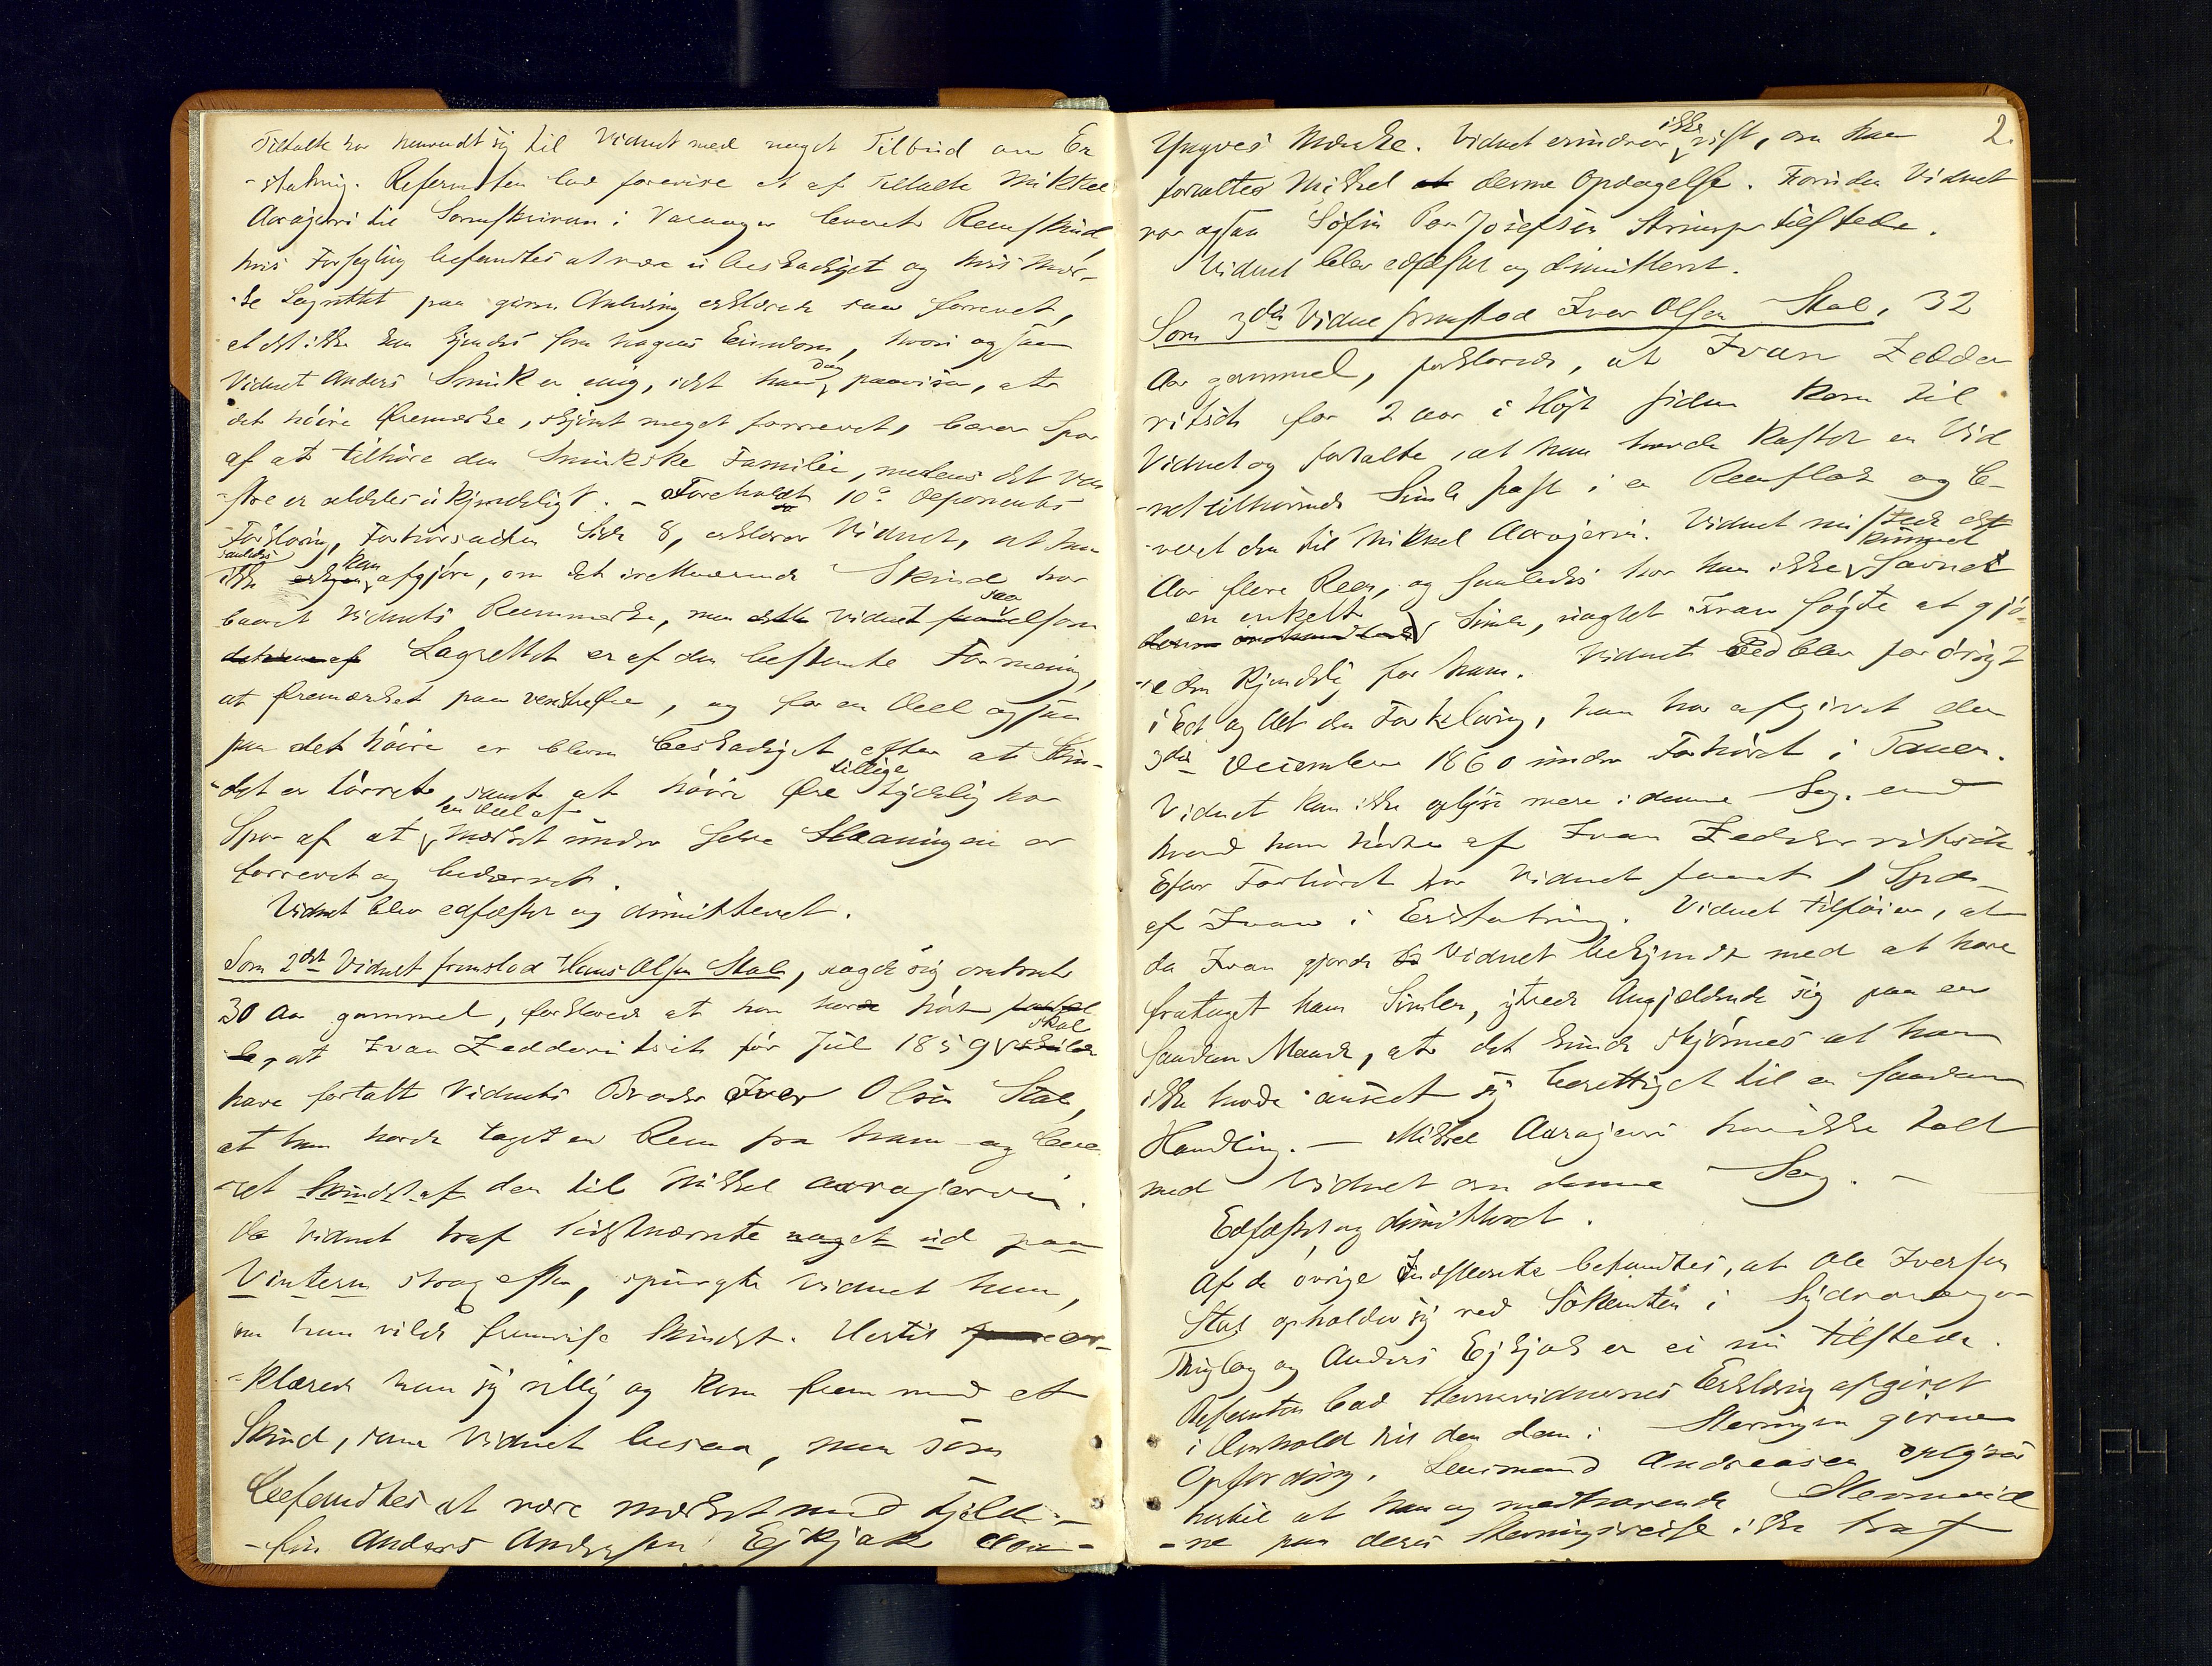 Tiltalte har henvendt sig til Vidnet med noget Tilbud om Er
-statning. Referenten lod forevise et af Tiltalte Mikkel
Aarajervi til Sorenskriveren i Varanger leveret Reenskind,
hvis Forsegling befandtes at være ubeskadiget og hvis Mær-
-ke Lagrettet paa given Anledning erklærede saa forrevet,
at det ikke kan kjendes som nogens Eiendom, hvori ogsaa
Vidnet Anders Smuk er enig, idet han dog paaviser, at
det høire Øremærke, skjønt meget forrevet, bærer Spor
af at tilhøre den Smukske Familie, medens det ven
-stre er aldeles ukjendeligt. - Foreholdt 10de Deponents
Forklaring, Forhørsacten Side 8, erklærer Vidnet, at han
ikke saaledes kan afgjøre, om det irettværende Skind har
baaret Vidnets Reenmærke, men Vidnet saavelsom
Lagrettet er af den bestemte Formening,
at Øremærket paa venstre Øre, og for en Deel ogsaa
paa det høire er bleven beskadiget efter at Skin-
-det er tørret, samt at høire Øre tillige tydelig har
Spor af at en Deel af Mærket under selve Flaaningen er
forrevet og bedærvet.
Vidnet blev edfæstet og dimitteret.
Som 2det Vidnet fremstod Hans Olsen Stal, sagde sig omtrent
30 Aar gammel, forklarede at han havde hørt
at Ivan Zedderitsch før Jul 1859 skal
have fortalt Vidnets Broder Iver Olsen Stal,
at han havde taget en Reen fra ham og leve
-ret Skindet af den til Mikkel Aarajervi.
Da Vidnet traf sidstnævnte noget ud paa
Vinteren strax efter, spurgte Vidnet ham,
om han vilde fremvise Skindet. Hertil er-
-klærede han sig villig og kom frem med et
Skind, som Vidnet besaa, men som
befandtes at være mærket med Fjeld-
-fin Anders Andersen Ejkjok
Yngres Mærke. Vidnet erindrer ikke vist, om han
fortalte Mikkel denne Opdagelse. Foruden Vidnet
var ogsaa Søfin Josefsen tilstede.
Vidnet blev edfæstet og dimitteret.
Som 3die Vidne fremstod Iver Olsen Stal, 32
Aar gammel, forklarede, at Ivan Zedde
ritsch for 2 Aar i Høst siden kom til
Vidnet og fortalte, at han havde kastet en Vid
-net tilhørende Simle fast i en Reenflok og le-
-veret den til Mikkel Aarajervi. Vidnet mistede det
Aar flere Reen, og saaledes har han ikke kunnet savnet
en enkelt Simle, uagtet Ivan søgte at gjø-
-re den kjendelig for ham. Vidnet Ed blev forøvrigt
i Eet og Alt den Forklaring, han har afgivet den
3die December 1860 under Forhøret i Tanen.
Vidnet kan ikke oplyse mere i denne Sag, end
hvad han hørte af Ivan Zedderitsch.
Efter Forhøret har Vidnet faaet 1 Spd.
af Ivan i Erstatning. Vidnet tilføier, at
da Ivan gjorde Vidnet bekjendt med at have
frataget ham Simlen, yttrede Angjældende sig paa en
saadan Maade, at det kunde skjønnes at han
ikke havde anseet sig berettiget til en saadan
Handling. - Mikkel Aarajervi har ikke talt
med Vidnet om denne Sag. -
Edfæstet og dimitteret.
Af de øvrige Indstevnte befandtes, at Ole Iversen
Stal opholder sig ved Søkanten i Sydvaranger
Thinglag og Anders Ejkjok er ei nu tilstede.
Referenten bad Stevnevidnernes Erklæring afgivet
i Henhold til den dem i Stevningen givne
Opfordring. Lensmand Andreasen opgav
hertil at han og medhavende Stevnevid
-ne paa deres Stevningsreise ikke traf
2.